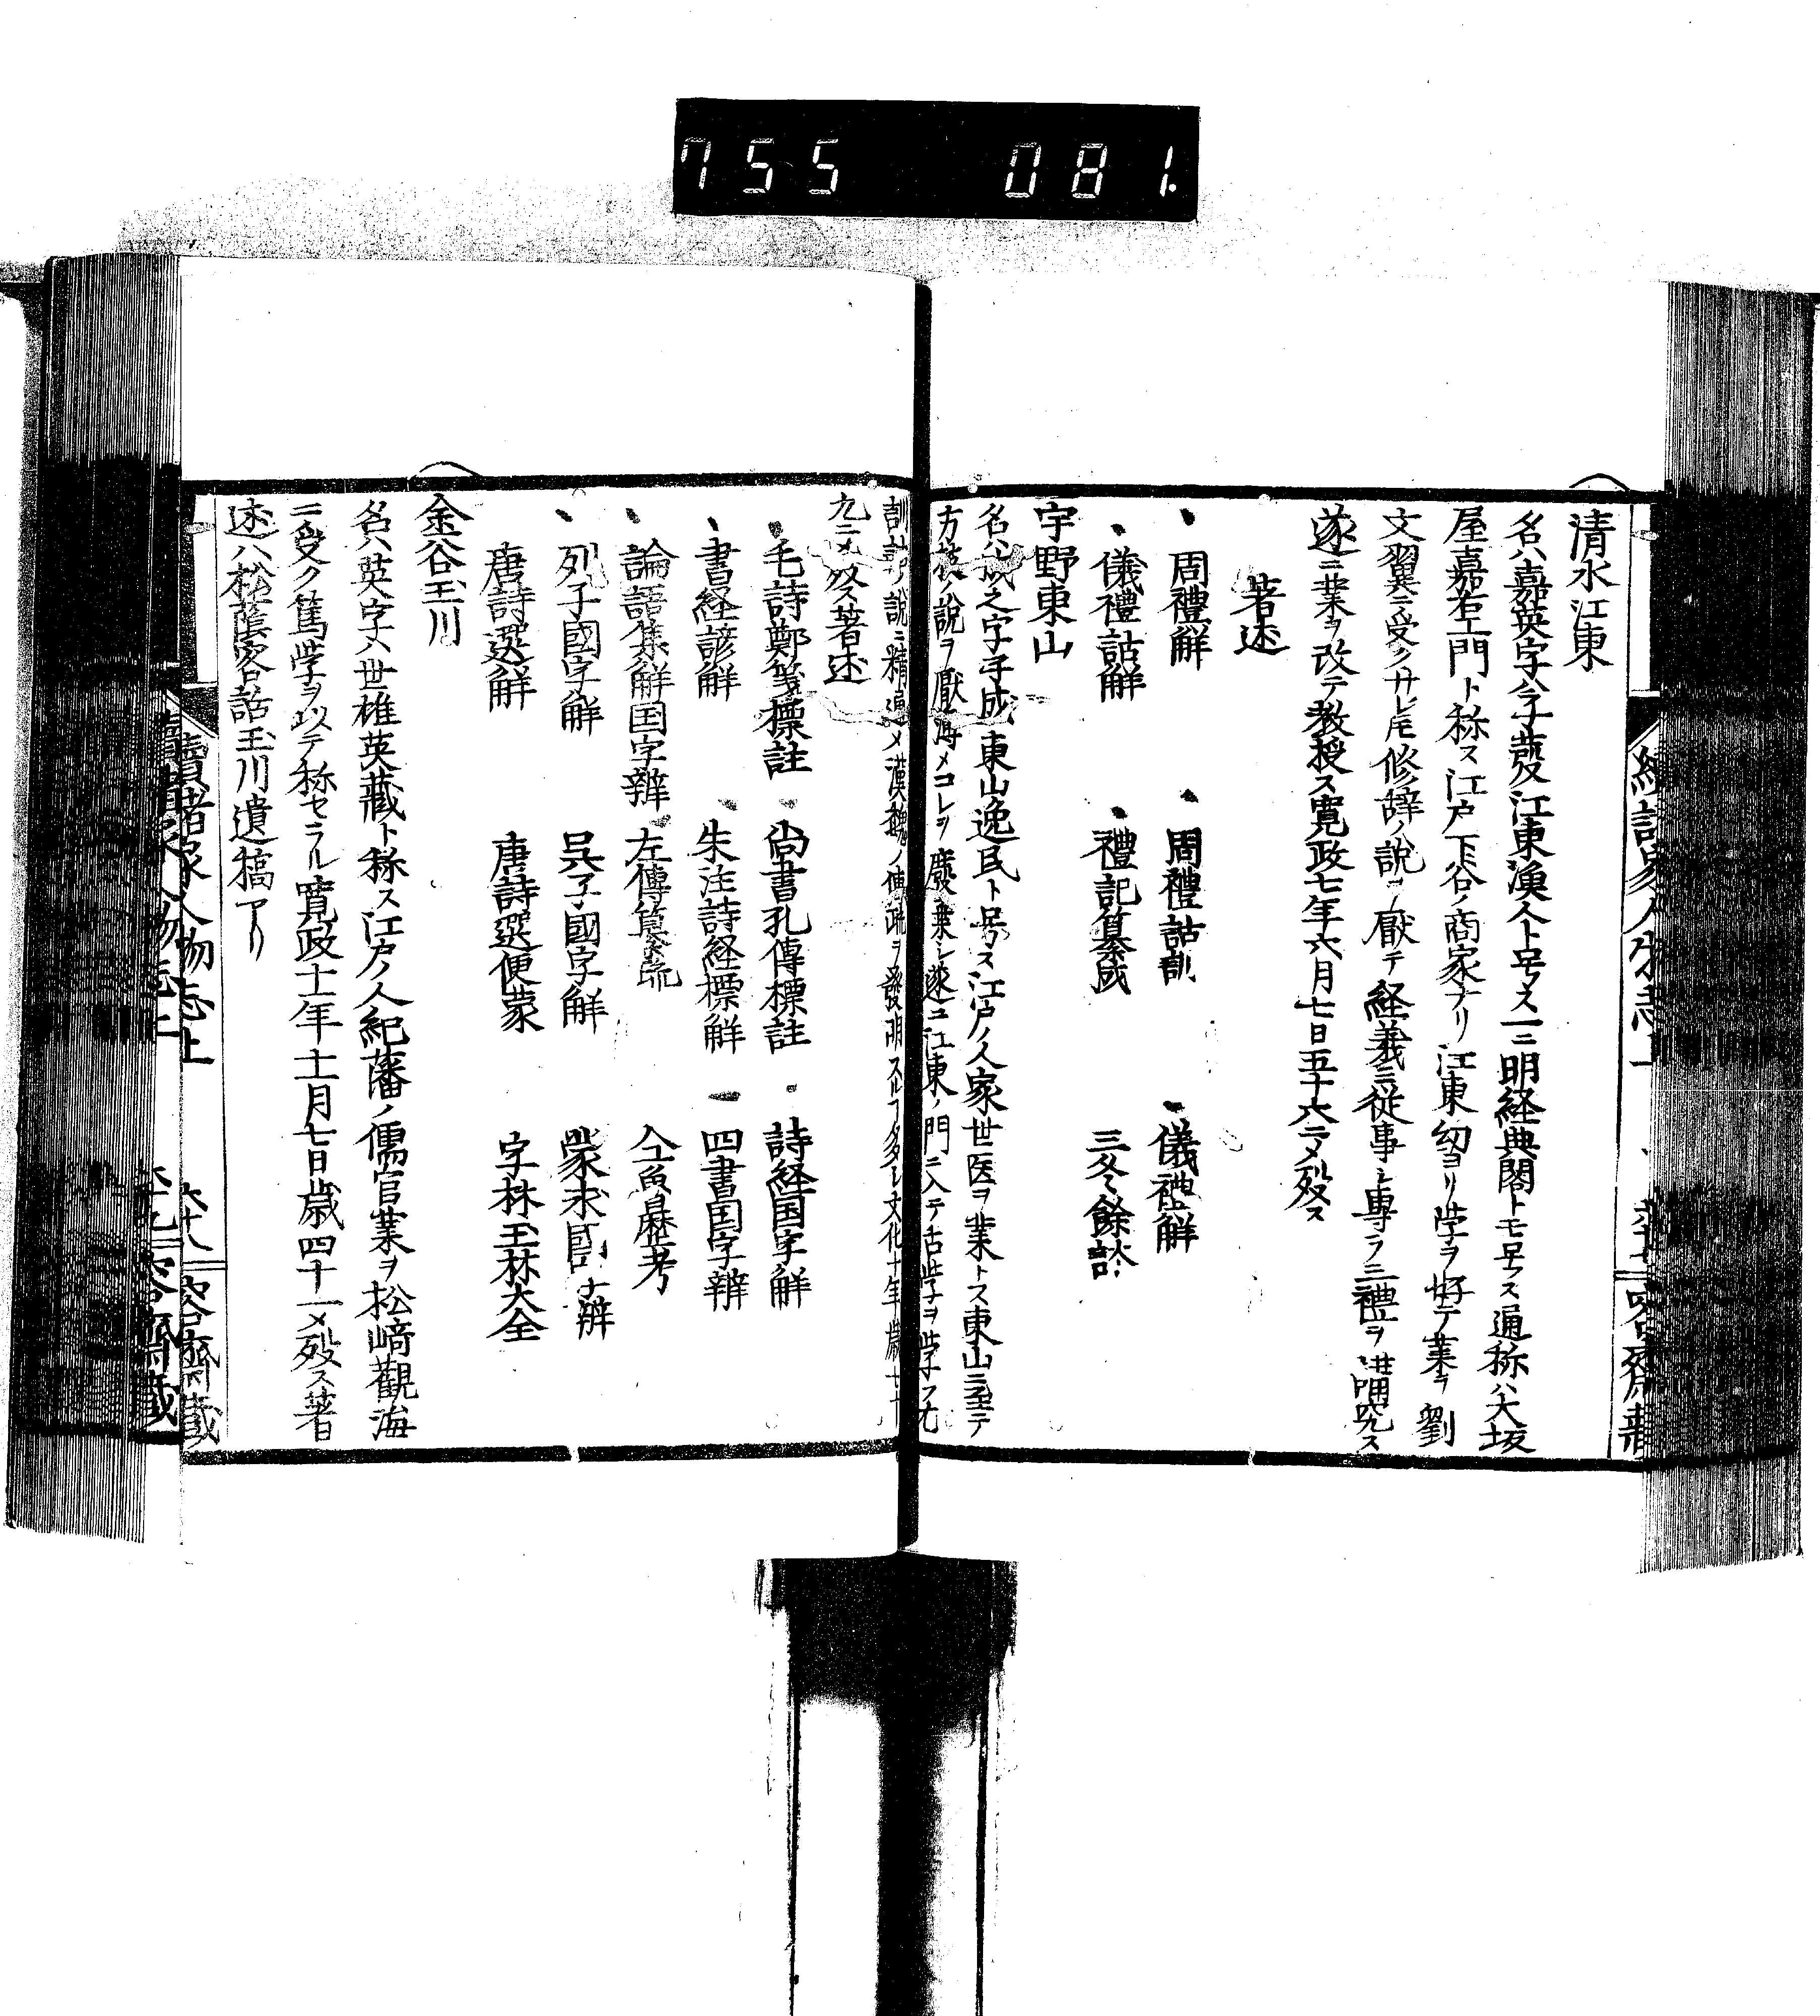 755 081.
清水江東
名ハ嘉英字ハ子發江東漁人ト号ス一ニ明経典閣トモ号ス通称ハ大坂
屋嘉右エ門ト称ス江戸下谷ノ商家ナリ江東幼ヨリ学ヲ好テ業ヲ劉
文翼ニ受クサレ𪜈修辞ノ説ヲ厭テ経義ニ従事シ専ラ三禮ヲ講究ス
遂ニ業ヲ改テ教授ス寛政七年六月七日五十六ニメ殁ス
著述
周禮解 周禮詁訓 儀禮解
儀禮詁解 禮記纂成 三冬餘談
宇野東山
名ハ成之字子成東山逸民ト号ス江戸ノ人家世医ヲ業トス東山ニ至テ
方技ノ説ヲ厭
コレヲ廢棄シ遂ニ江東ノ門ニ入テ古学ヲ学フ尤
訓詁ノ説ニ精通メ漢魏ノ傳疏ヲ發明スルヿ多シ文化十年歳七十
九ニメ殁ス著述
毛詩鄭箋標註 尚書孔傳標註 詩経国字解
書経諺解 朱注詩経標解 四書国字辨
論語集解国字辨 左傳纂疏 仝魚暦考
列子國字解 呉子國字解 蒙求国字辨
唐詩選解 唐詩選便蒙 字林玉林大全
金谷玉川
名ハ英字ハ世雄英藏ト称ス江戸ノ人紀藩ノ儒官業ヲ松﨑觀海
ニ受ク篤学ヲ以テ称セラル寛政十一年十一月七日歳四十一メ殁ス著
述ハ松蔭客話玉川遺稿アリ
續諸家人物志上 六十八 容齋蔵